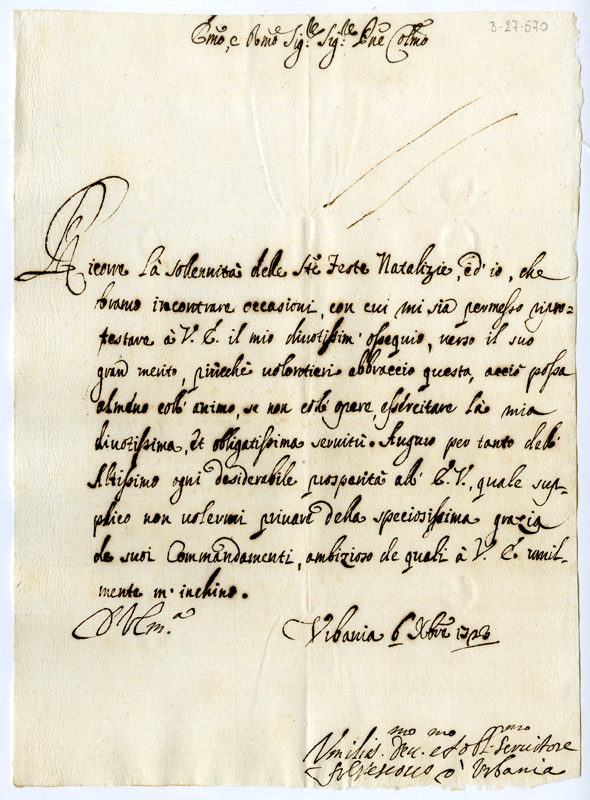 3-27-570
Emo, e Rmo Sigre Sigre Pne Colmo
Ricorre la solennità delle Ste Feste Natalizie, ed io, che
bramo incontrare occasioni, con cui mi sia permesso ripro=
testare à V. E. il mio divotissim' ossequio, verso il suo
gran merito, più che volontieri abbraccio questa, acciò possa
almeno coll' animo, se non coll' opere, essercitare la mia
divotissima, et obligatissima servitù. Auguro per tanto dall'
Altissimo ogni desiderabile prosperità all' E. V., quale sup-
plico non volermi privare della speciosissima grazia
de suoi Commandamenti, ambizioso de quali à V. E. umil-
mente m' inchino.
D V Em.a
Urbania 6 Xbre 1723
Umilis.mo Dev.mo et Obl.pmo Servitore
Vescovo d' Urbania